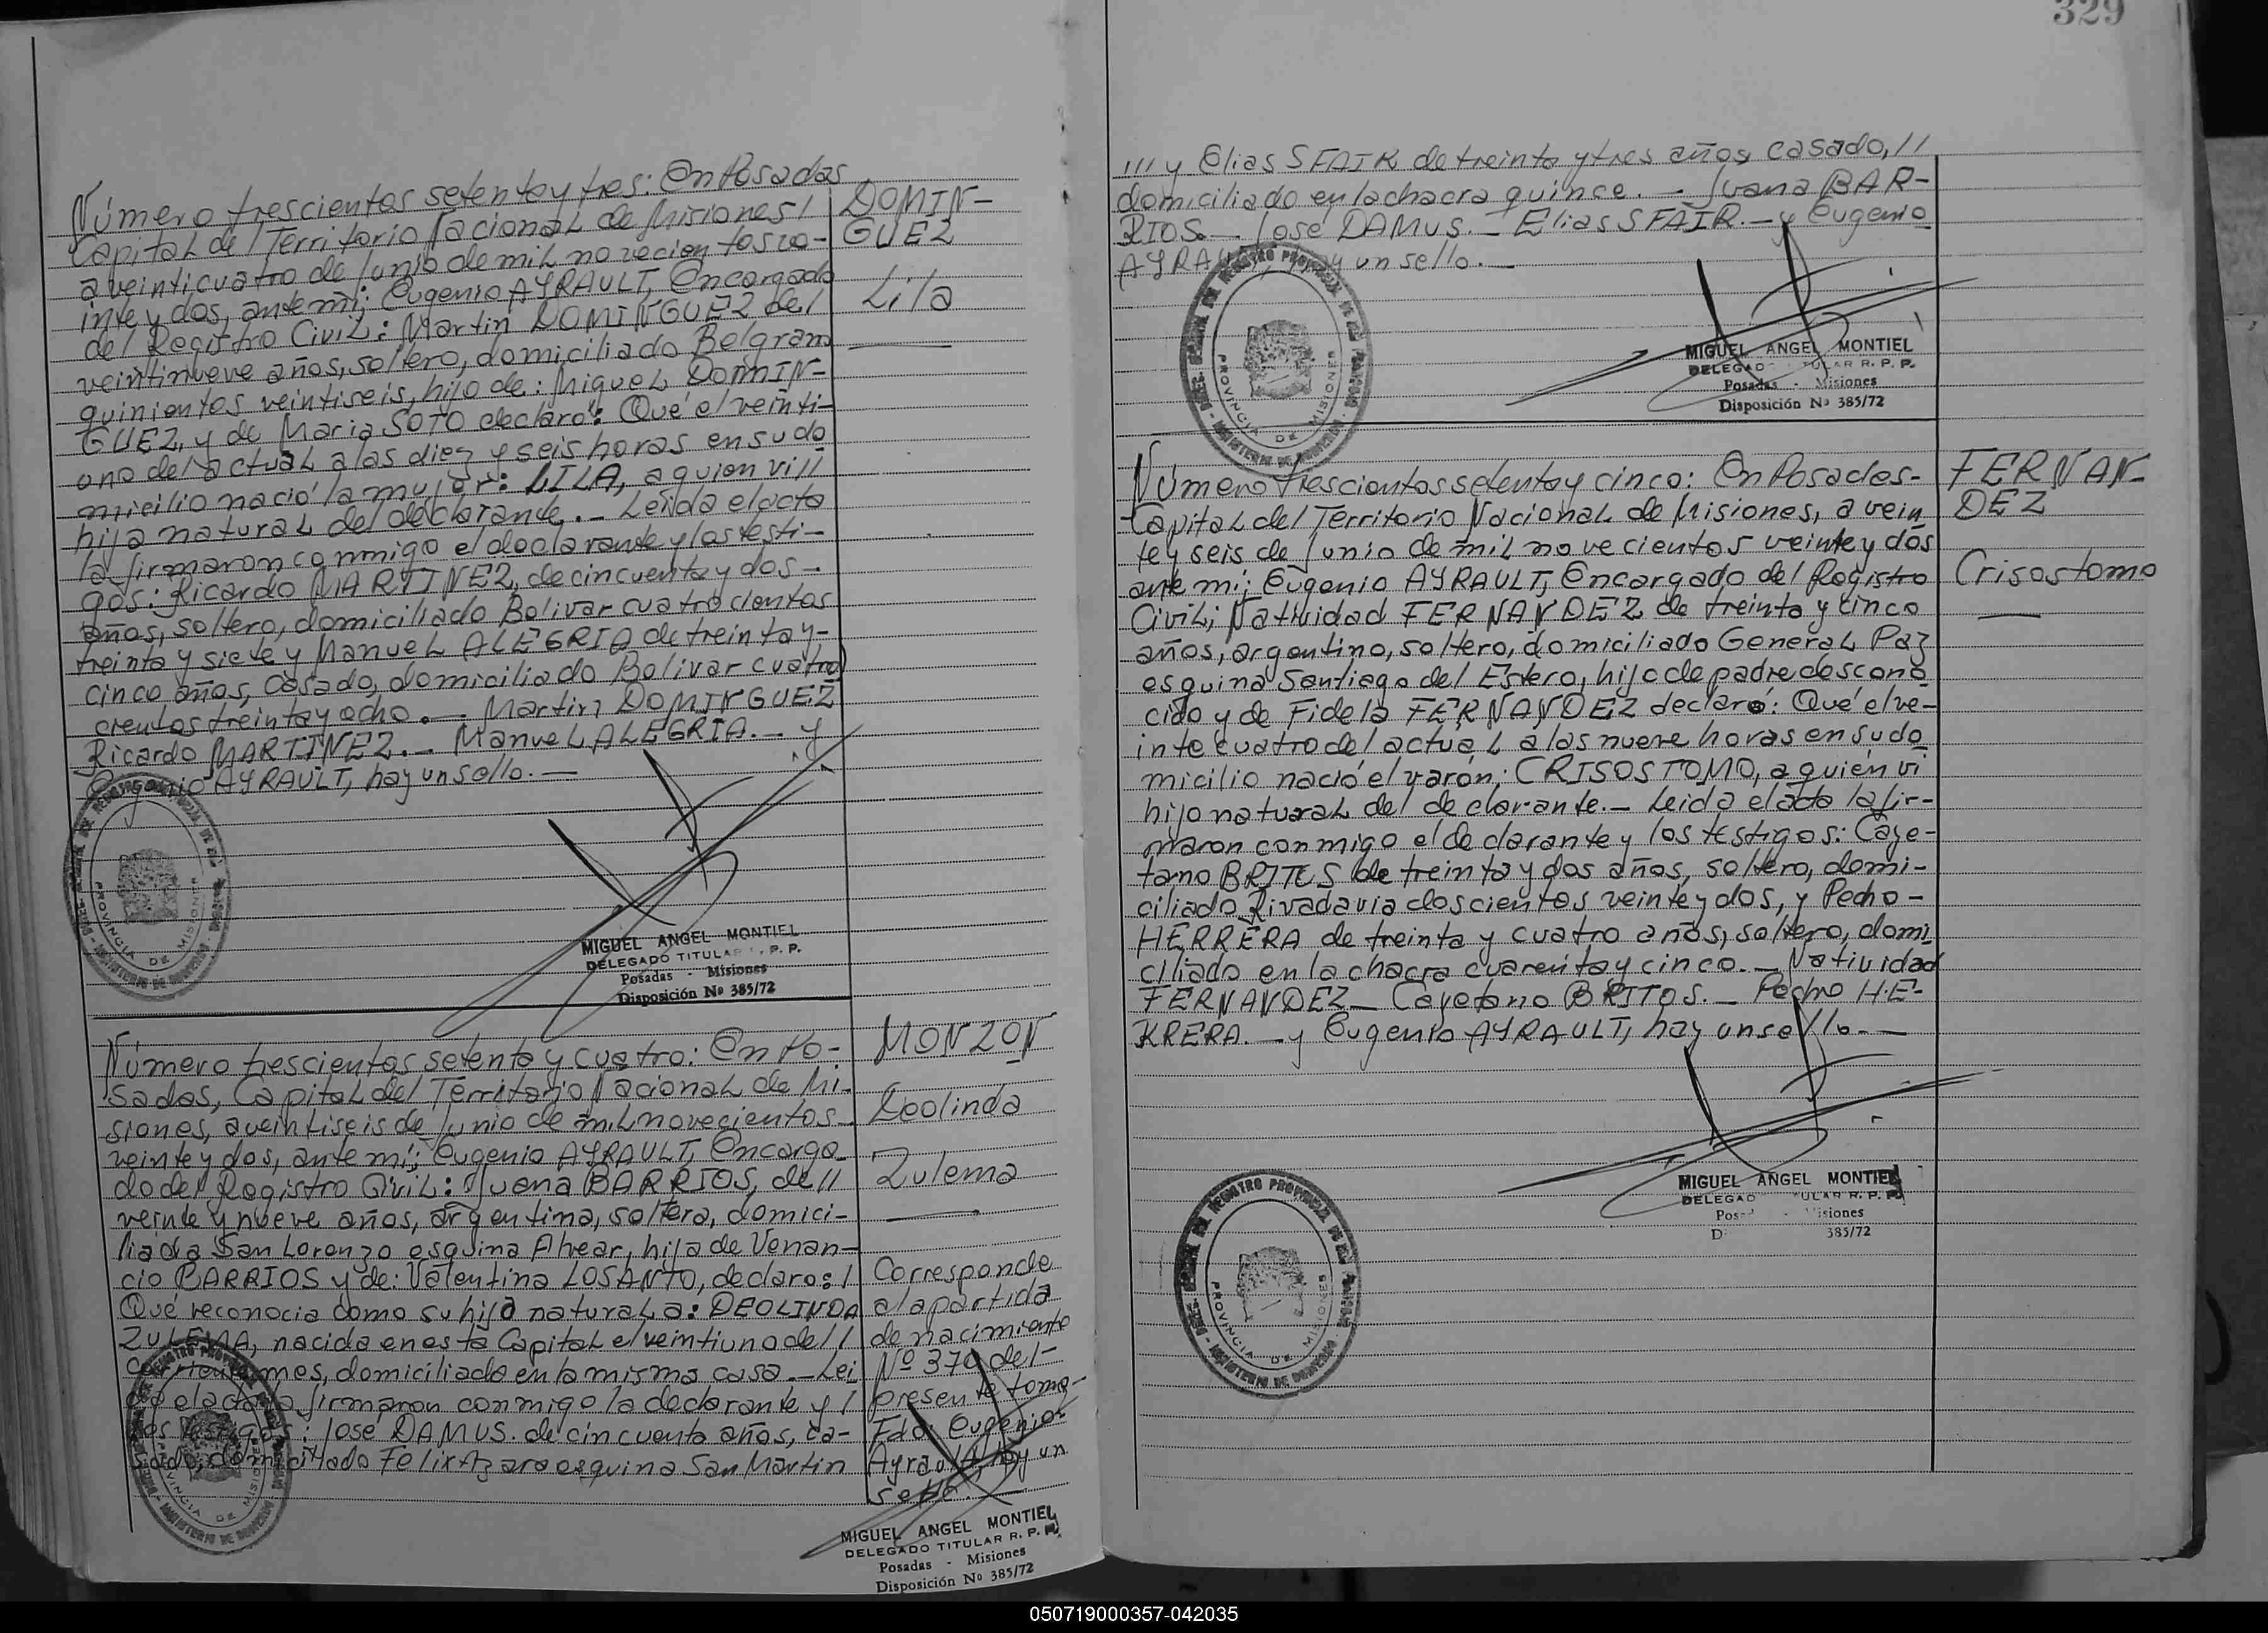 Número trescientos setenta y tres: En Posadas
Capital del Territorio Nacional de Misiones/
a veinticuatro de Junio de mil novecientos ve-
inte y dos, ante mi; Eugenio AYRAULT, Encargado
del Registro Civil: Martin DOMINGUEZ de/
veintinueve años, soltero, domiciliado Belgrano
quinientos veintiseis, hijo de: Miguel DOMIN-
GUEZ, y de Maria SOTO declaró: Qué el veinti-
uno del actual a las diez y seis horas en su do
micilio nació la mujer: LILA, a quien vi//
hija natural del declarante._ Leida el acta
la firmaron conmigo el declarante y los testi-
gos: Ricardo MARTINEZ, de cincuenta y dos-
años, soltero, domiciliado Bolivar cuatrocientos
treinta y siete y Manuel ALEGRIA de treinta y-
cinco años, casado, domiciliado Bolivar cuatro
cientos treinta y ocho._ Martin DOMINGUEZ
Ricardo MARTINEZ._ Manuel ALEGRIA._ y
Eugenio AYRAULT, hay un sello._
DOMIN-
GUEZ
Lila
PROVINCIA DE MISIONES
MIGUEL ANGEL MONTIEL
DELEGADO TITULAR R. P. P.
Posadas - Misiones
Disposición Nº 385/72
Número trescientos setenta y cuatro: En Po-
sadas, Capital del Territorio Nacional de Mi-
siones, a veintiseis de Junio de mil novecientos-
veinte y dos, ante mi; Eugenio AYRAULT, Encarga-
do del Registro Civil: Juana BARRIOS, de//
veinte y nueve años, argentina, soltera, domici-
liada San Lorenzo esquina Alvear, hija de Venan-
cio BARRIOS y de: Valentina LOSANTO, declaro:/
Qué reconocia como su hija natural a: DEOLINDA
ZULEMA, nacida en esta Capital el veintiuno del/
corriente mes, domiciliado en la misma casa._ Lei
da el acta la firmaron conmigo la declarante y/
los testigos: Jose DAMUS. de cincuenta años, ca-
sado, domiciliado Felix Azara esquina San Martin
MONZON
Deolinda
Zulema
Corresponde
a la partida
de nacimiento
Nº 370 del-
presente tomo-
Fdo: Eugenio-
Ayrault, hay un
sello._
PROVINCIA DE MISIONES
MIGUEL ANGEL MONTIEL
DELEGADO TITULAR R. P. P.
Posadas - Misiones
Disposición Nº 385/72
329
/// y Elias SFAIR de treinta y tres años, casado,//
domiciliado en la chacra quince._ Juana BAR-
RIOS._ Jose DAMUS._ Elias SFAIR._ y Eugenio
AYRAULT, hay un sello._
PROVINCIA DE MISIONES
MIGUEL ANGEL MONTIEL
DELEGADO TITULAR R. P. P.
Posadas - Misiones
Disposición Nº 385/72
Número trescientos setenta y cinco: En Posadas-
Capital del Territorio Nacional de Misiones, a vein
te y seis de Junio de mil novecientos veinte y dos
ante mi; Eugenio AYRAULT, Encargado del Registro
Civil; Natividad FERNANDEZ de treinta y cinco
años, argentino, soltero, domiciliado General Paz
esquina Santiago del Estero, hijo de padre descono
cido y de Fidela FERNANDEZ declaró: Qué el ve-
inte cuatro del actual a las nueve horas en su do
micilio nació el varón; CRISOSTOMO, a quién vi
hijo natural del declarante._ Leida el acta la fir-
maron conmigo el declarante y los testigos: Caye-
tano BRITES de treinta y dos años, soltero, domi-
ciliado Rivadavia doscientos veinte y dos, y Pedro-
HERRERA de treinta y cuatro años, soltero, domi
ciliado en la chacra cuarenta y cinco._ Natividad
FERNANDEZ_ Cayetano BRITOS._ Pedro HE-
RRERA._ y Eugenio AYRAULT, hay un sello._
FERNAN-
DEZ
Crisostomo
PROVINCIA DE MISIONES
MIGUEL ANGEL MONTIEL
DELEGAD TULAR R. P. P.
Misiones
385/72
050719000357-042035